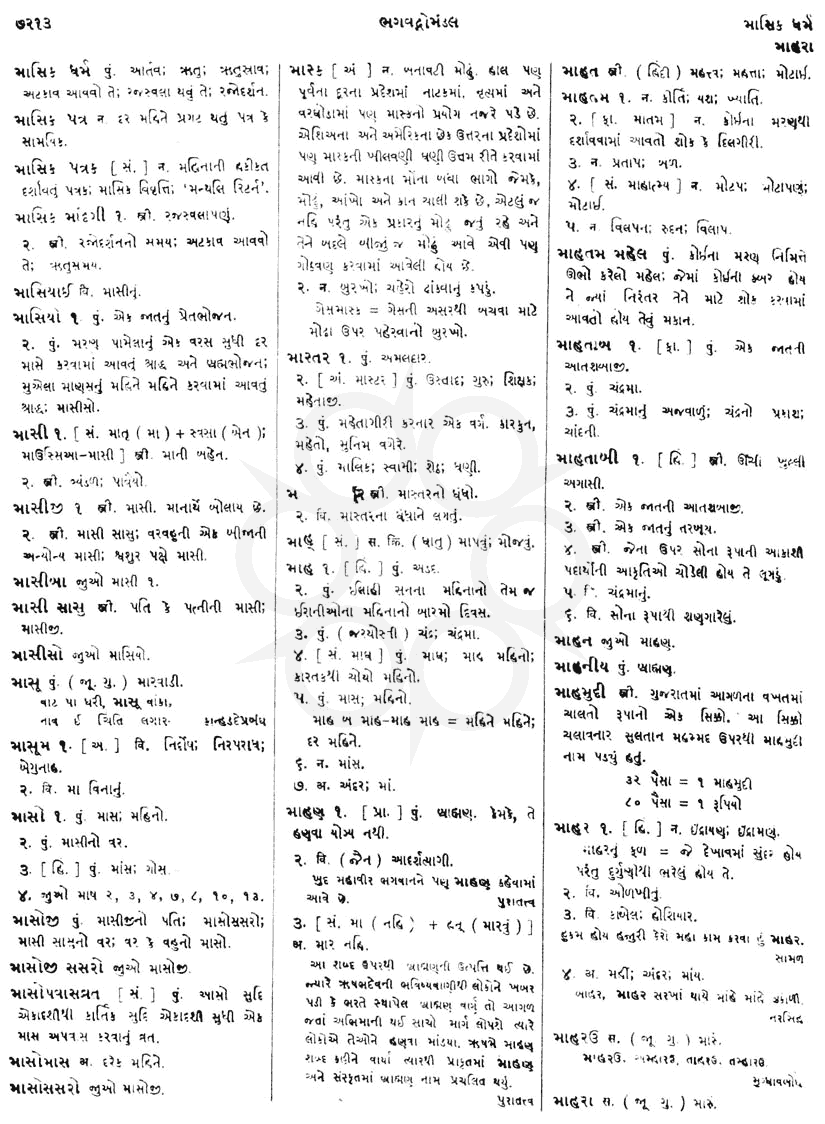 ૭૨૧૩
ભગવદ્ગોમંડલ
માસિક ધર્મ
માહરા
માસિક ધર્મ પું. આર્તવ; ઋતુ; ઋતુસ્રાવ;
અટકાવ આવવો તે; રજસ્વલા થવું તે; રજોદર્શન.
માસિક પત્ર ન. દર મહિને પ્રગટ થતું પત્ર કે
સામયિક.
માસિક પત્રક [ સં. ] ન. મહિનાની હકીકત
દર્શાવતું પત્રક; માસિક વિવૃત્તિ; ‘મન્થલિ રિટર્ન’.
માસિક માંદગી ૧. સ્ત્રી. રજસ્વલાપણું.
૨. સ્ત્રી. રજોદર્શનનો સમય; અટકાવ આવવો
તે; ઋતુસમય.
માસિયાઈ વિ. માસીનું.
માસિયો ૧. પું. એક જાતનું પ્રેતભોજન.
૨. પું. મરણ પામેલાનું એક વરસ સુધી દર
માસે કરવામાં આવતું શ્રાદ્ધ અને બ્રહ્મભોજન;
મુએલા માણસનું મહિને મહિને કરવામાં આવતું
શ્રાદ્ધ; માસીસો.
માસી ૧. [ સં. માતૃ ( મા ) + સ્વસા ( બેન );
માઉસ્સિઆ-માસી ] સ્ત્રી. માની બહેન.
૨. સ્ત્રી. વ્યંડળ; પાવૈયો.
માસીજી ૧ સ્ત્રી. માસી. માનાર્થે બોલાય છે.
૨. સ્ત્રી. માસી સાસુ; વરવહુની એક બીજાની
અન્યોન્ય માસી; શ્વશુર પક્ષે માસી.
માસીબા જુઓ માસી ૧.
માસી સાસુ સ્ત્રી. પતિ કે પત્નીની માસી;
માસીજી.
માસીસો જુઓ માસિયો.
માસૂ પું. ( જૂ. ગુ. ) મારવાડી.
વાટ પા ધરી, માસૂ વાંકા,
નાવ ઈ ચિતિ લગાર. કાન્હડદેપ્રબંધ
માસૂમ ૧. [ અ. ] વિ. નિર્દોષ; નિરપરાધ;
બેગુનાહ.
૨. વિ. મા વિનાનું.
માસો ૧. પું. માસ; મહિનો.
૨. પું. માસીનો વર.
૩. [ હિં. ] પું. માંસ; ગોસ.
૪. જુઓ માષ ૨, ૩, ૪, ૭, ૮, ૧૦, ૧૩.
માસોજી પું. માસીજીનો પતિ; માસોસસરો;
માસી સાસુનો વર; વર કે વહુનો માસો.
માસોજી સસરો જુઓ માસોજી.
માસોપવાસવ્રત [ સં. ] પું. આસો સુદિ
એકાદશીથી કાર્તિક સુદિ એકાદશી સુધી એક
માસ અપવાસ કરવાનું વ્રત.
માસોમાસ અ. દરેક મહિને.
માસોસસરો જુઓ માસોજી.
માસ્ક [ અં ] ન. બનાવટી મોઢું. હાલ પણ
પૂર્વના દૂરના પ્રદેશમાં નાટકમાં. નૃત્યમાં અને
વરઘોડામાં પણ માસ્કનો પ્રયોગ નજરે પડે છે.
એશિઅના અને અમેરિકાના છેક ઉત્તરના પ્રદેશોમાં
પણ માસ્કની ખીલવણી ઘણી ઉત્તમ રીતે કરવામાં
આવી છે. માસ્કના મોંના બધા ભાગો જેમકે,
મોઢું, આંખો અને કાન ચાલી શકે છે, એટલું જ
નહિ પરંતુ એક પ્રકારનું મોઢું જતું રહે અને
તેને બદલે બીજું જ મોઢું આવે એવી પણ
ગોઠવણ કરવામાં આવેલી હોય છે.
૨. ન. બુરખો; ચહેરો ઢાંકવાનું કપડું.
ગેસમાસ્ક = ગેસની અસરથી બચવા માટે
મોઢા ઉપર પહેરવાનો બુરખો.
માસ્તર ૧. પું. અમલદાર.
૨. [ અં. માસ્ટર ] પું. ઉસ્તાદ; ગુરુ; શિક્ષક;
મહેતાજી.
૩. પું. મહેતાગીરી કરનાર એક વર્ગ. કારકુન,
મહેતો, મુનિમ વગેરે.
૪. પું. માલિક; સ્વામી; શેઠ; ધણી.
મ સ્ત્રી. માસ્તરનો ધંધો.
૨. વિ. માસ્તરના ધંધાને લગતું.
માહ્ [ સં. ] સ. ક્રિ. ( ધાતુ ) માપવું; મોજવું.
માહ ૧. [ હિં. ] પું. અડદ.
૨. પું. ઈલાહી સનના મહિનાનો તેમ જ
ઈરાનીઓના મહિનાનો બારમો દિવસ.
૩. પું. ( જરથોસ્તી ) ચંદ્ર; ચંદ્રમા.
૪. [ સં. માઘ ] પું. માઘ; માહ મહિનો;
કારતકથી ચોથો મહિનો.
૫. પું. માસ; મહિનો.
માહ બ માહ-માહ માહ = મહિને મહિને;
દર મહિને.
૬. ન. માંસ.
૭. અ. અંદર; માં.
માહણ ૧. [ પ્રા. ] પું. બ્રાહ્મણ. કેમકે, તે
હણવા યોગ્ય નથી.
૨. વિ. ( જૈન ) આદર્શત્યાગી.
ખુદ મહાવીર ભગવાનને પણ માહણ કહેવામાં
આવે છે. પુરાતત્ત્વ
૩. [ સં. મા ( નહિ ) + હન્ ( મારવું ) ]
અ. માર નહિ.
આ શબ્દ ઉપરથી બ્રાહ્મણની ઉત્પત્તિ થઈ છે.
જ્યારે ઋષભદેવની ભવિષ્યવાણીથી લોકોને ખબર
પડી કે ભરતે સ્થાપેલ બ્રાહ્મણ વર્ગ તો આગળ
જતાં અભિમાની થઈ સાચો માર્ગ લોપશે ત્યારે
લોકોએ તેઓને હણવા માંડયા. ઋષભે માહણ
શબ્દ કહીને વાર્યા ત્યારથી પ્રાકૃતમાં માહણ
અને સંસ્કૃતમાં બ્રાહ્મણ નામ પ્રચલિત થયું.
પુરાતત્ત્વ
માહત સ્ત્રી. ( હિંદી ) મહત્ત્વ; મહત્તા; મોટાઈ.
માહતમ ૧. ન. કીર્તિ; યશ; ખ્યાતિ.
૨. [ ફા. માતમ ] ન. કોઈના મરણથી
દર્શાવવામાં આવતો શોક કે દિલગીરી.
૩. ન. પ્રતાપ; બળ.
૪. [ સં. માહાત્મ્ય ] ન. મોટપ; મોટાપણું;
મોટાઈ.
૫. ન. વિલપન; રુદન; વિલાપ.
માહતમ મહેલ પું. કોઈના મરણ નિમિત્તે
ઊભો કરેલો મહેલ; જેમાં કોઈની કબર હોય
ને જ્યાં નિરંતર તેને માટે શોક કરવામાં
આવતો હોય તેવું મકાન.
માહતાબ ૧. [ ફા. ] પું. એક જાતની
આતશબાજી.
૨. પું. ચંદ્રમા.
૩. પું. ચંદ્રમાનું અજવાળું; ચંદ્રનો પ્રકાશ;
ચાંદની.
માહતાબી ૧. [ હિં. ] સ્ત્રી. ઊંચી ખુલ્લી
અગાસી.
૨. સ્ત્રી. એક જાતની આતશબાજી.
૩. સ્ત્રી. એક જાતનું તરબૂચ.
૪. સ્ત્રી. જેના ઉપર સોના રૂપાની આકાશી
પદાર્થોની આકૃતિઓ ચોડેલી હોય તે લૂગડું.
૫. વિ. ચંદ્રમાનું.
૬. વિ. સોના રૂપાથી શણગારેલું.
માહન જુઓ માહણ.
માહનીય પું. બ્રાહ્મણ.
માહમુદી સ્ત્રી. ગુજરાતમાં આગળના વખતમાં
ચાલતો રૂપાનો એક સિક્કો. આ સિક્કો
ચલાવનાર સુલતાન મહમ્મદ ઉપરથી માહમુદી
નામ પડયું હતું.
૩૨ પૈસા = ૧ માહમુદી
૮૦ પૈસા = ૧ રૂપિયો
માહર ૧. [ હિં. ] ન. ઈંદ્રાયણ; ઈંદ્રામણું.
માહરનું ફળ = જે દેખાવમાં સુંદર હોય
પરંતુ દુર્ગુણોથી ભરેલું હોય તે.
૨. વિ. ઓળખીતું.
૩. વિ. કાબેલ; હોશિયાર.
હુકમ હોય હજુરી કેરો મહા કામ કરવા હું માહર.
સામળ
૪. અ. મહીં; અંદર; માંય.
બાહર, માહર સરખાં થાયે માંહે માંદે કકાળી.
નરસિંહ
માહરઉ સ. ( જૂ. ગુ. ) મારું.
માહરઉ. અમ્હારઉ, તાહારઉ. તમ્હારઉ.
મુગ્ધાવબોધ
માહરા સ. ( જૂ. ગુ. ) મારું.